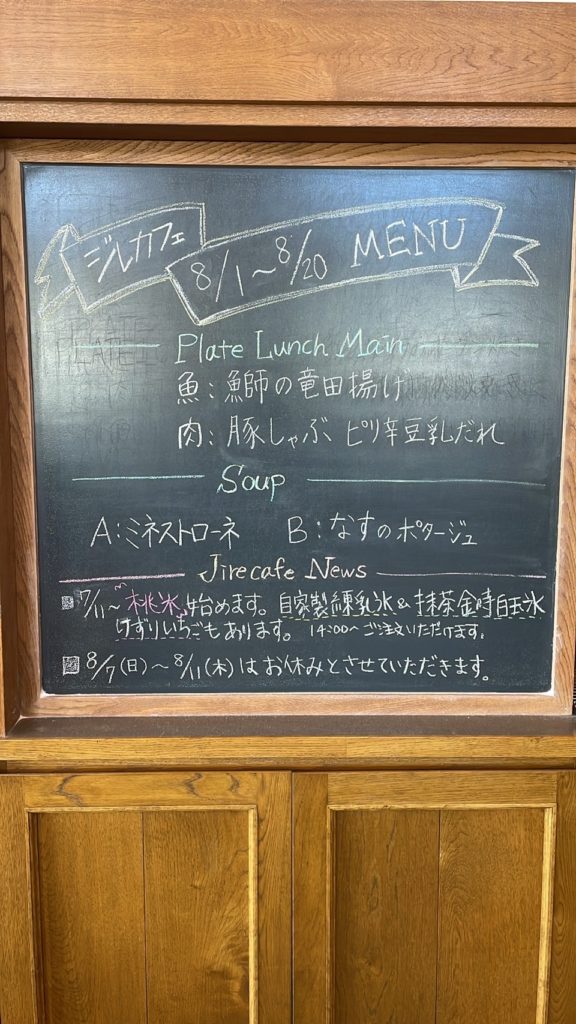 ジルカフェ
8/1〜8/20 MENU
Plate Lunch Main
魚:鰤の竜田揚げ
肉:豚しゃぶ ピリ辛豆乳だれ
Soup
A:ミネストローネ B:なすのポタージュ
Jirecafe News
7/1〜桃氷始めます。自家製練乳氷&抹茶金時白玉氷
けずりいちごもあります。 14:00〜ご注文いただけます。
8/7(日)〜8/11(木)はお休みとさせていただきます。